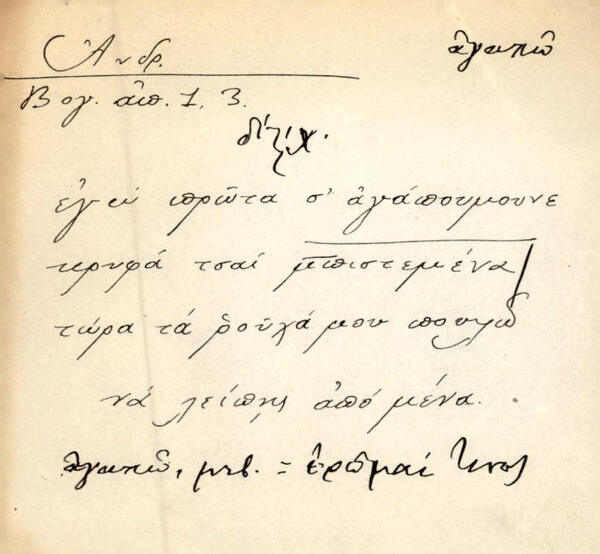 Ἄνδρ.
ἀγαπῶ
Βογ. ἀπ. 1, 3.
δίστιχ.
ἐγὼ πρῶτα σ' ἀγάπουμουνε
κρυφά τσαί μπιστεμένα
τώρα τά ῥοῦχά μου πουλῶ
νά λείπῃς ἀπό μένα.
ἀγαπῶ, μτβ. = ἐρῶμαί τινος